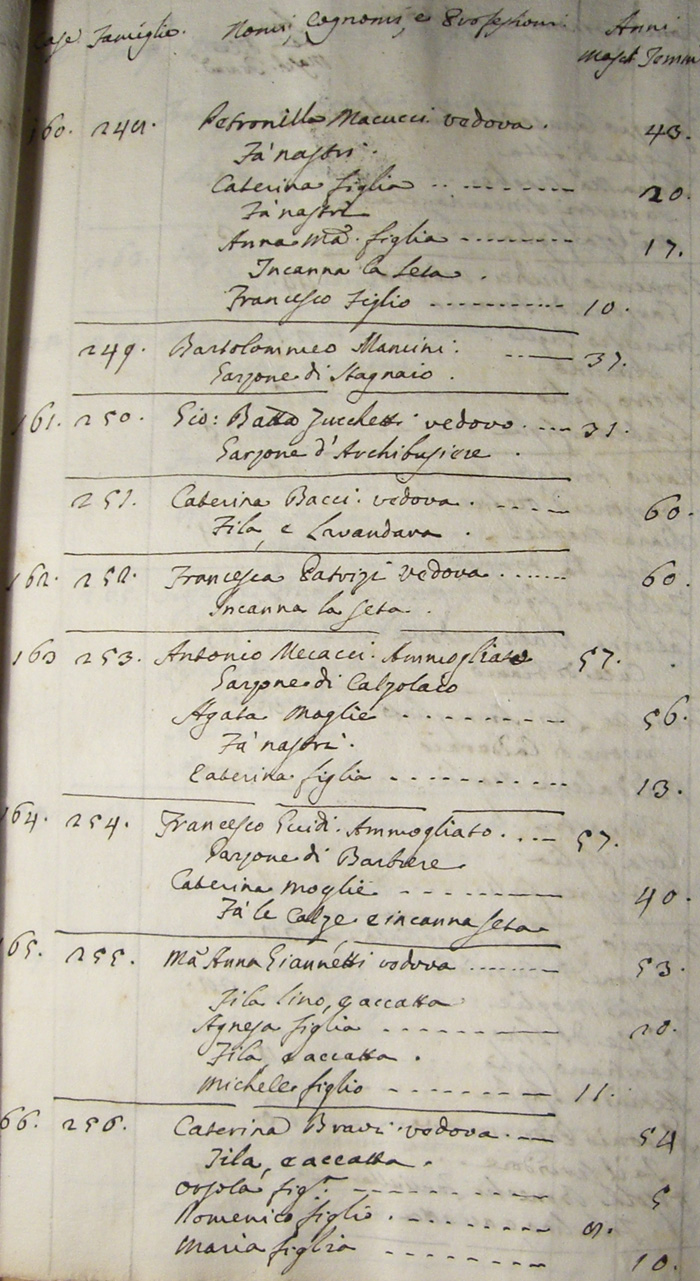 Case Famiglie. Nomi, Cognomi, e Professioni. Anni
Masch. Femm
160. 248. Petronilla Macucci vedova. 43.
Fà nastri.
Caterina figlia .. -------- 20.
Fà nastri
Anna Ma. figlia --------- 17.
Incanna la seta.
Francesco Figlio ---------- 10.
249. Bartolommeo Mancini. ---- 37.
Garzone di Stagnaio.
161. 250. Gio: Batta Zucchetti vedovo. --- 31.
Garzone d'Archibusiere.
251. Caterina Bacci. vedova. ----- 60.
Fila, e Lavandara.
162. 252. Francesca Patrizi vedova ....... 60.
Incanna la seta.
163 253. Antonio Mecacci. Ammogliato 57.
Garzone di Calzolaio
Agata Moglie ---------- 56.
Fà nastri.
Caterina figlia ---------- 13.
164. 254. Francesco Guidi. Ammogliato. --- 57.
Garzone di Barbiere
Caterina moglie --------- 40.
Fà le Calze e incanna seta
165. 255. Ma Anna Giannetti vedova ....... 53.
Fila lino, e accatta
Agnesa figlia ---------- 20.
Fila, e accatta.
Michele figlio --------- 11.
66. 256. Caterina Bravi. vedova. -- 54
Fila, e accatta.
Orsola fig.a ---------- 5
Domenico figlio. --------- 8.
Maria figlia --------- 10.